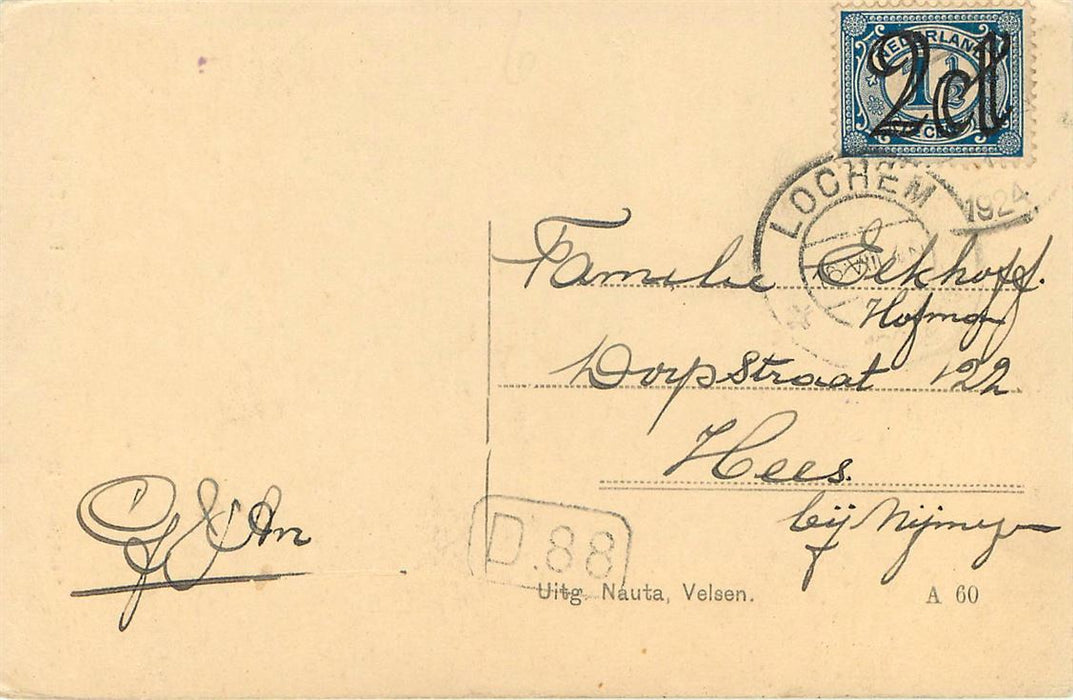 NEDERLAND
1½
2 ct
LOCHEM
1924
Familie Eekhoff.
Hofman
Dorpstraat 122
Hees.
bij Nijmegen
D.88
Uitg. Nauta, Velsen.
A 60